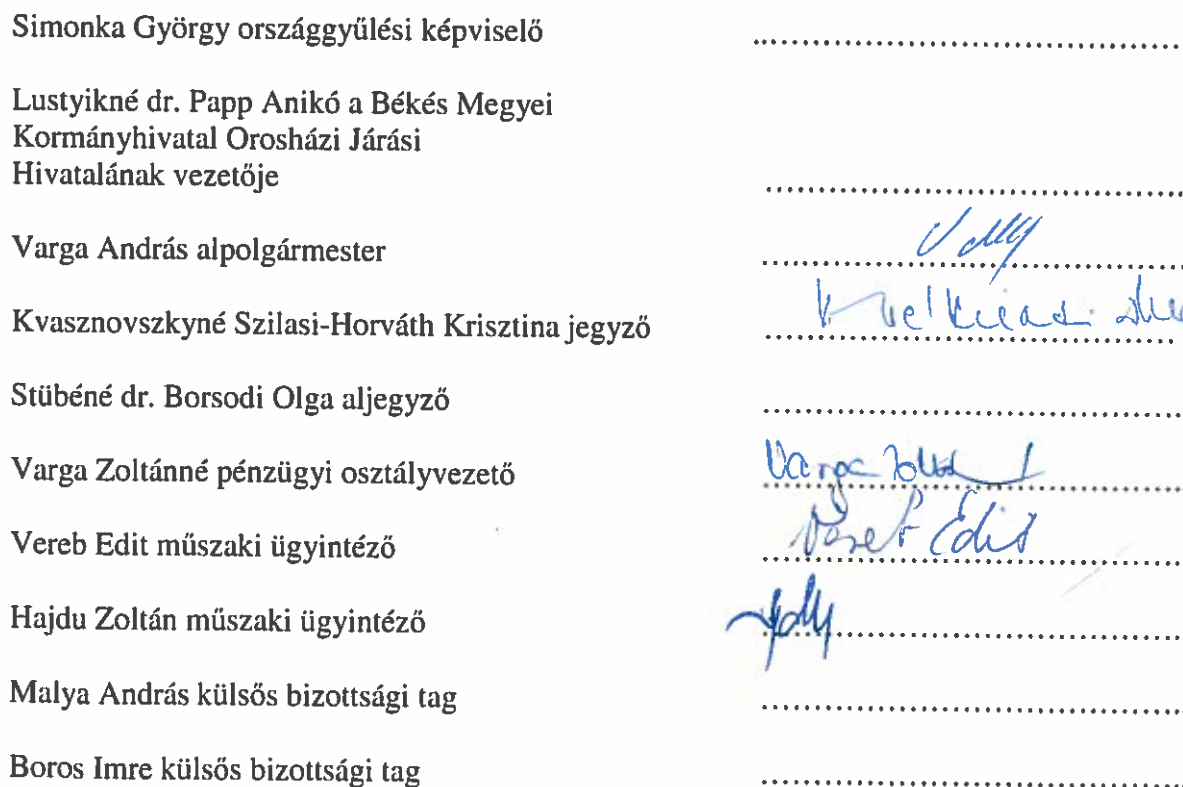 Simonka György országgyűlési képviselő ................................................
Lustyikné dr. Papp Anikó a Békés Megyei
Kormányhivatal Orosházi Járási
Hivatalának vezetője ................................................
Varga András alpolgármester ................................................
Kvasznovszkyné Szilasi-Horváth Krisztina jegyző ................................................
Stübéné dr. Borsodi Olga aljegyző ................................................
Varga Zoltánné pénzügyi osztályvezető Varga ................................................
Vereb Edit műszaki ügyintéző Vereb Edit ................................................
Hajdu Zoltán műszaki ügyintéző ................................................
Malya András külsős bizottsági tag ................................................
Boros Imre külsős bizottsági tag ................................................